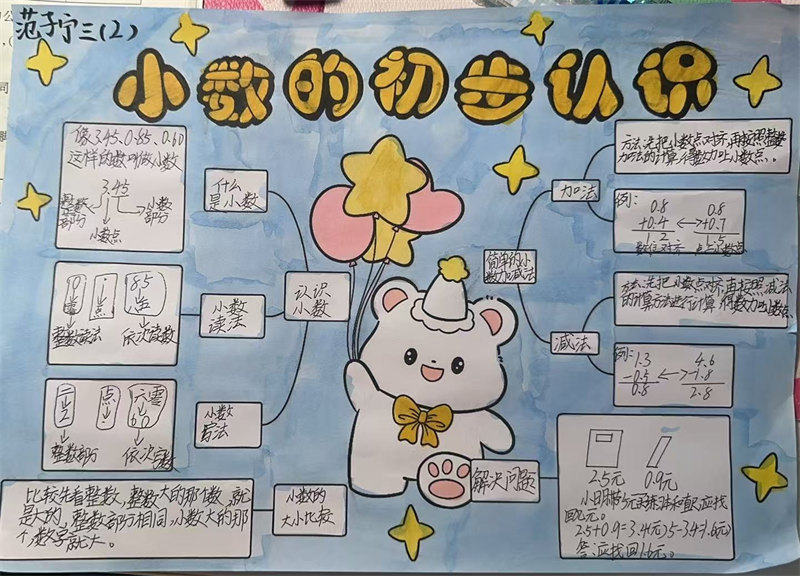 范子宁三(2)
小数的初步认识
像3.45、0.85、0.60
这样的数叫做小数
3.45
整数
部分
小数
部分
小数点
什么
是小数
小数
读法
认识
小数
85
整数读法
依次读数
小数
写法
点
六零
整数部分
依次写数
比较先看整数,整数大的那个数,就
是大的,整数部分相同,小数大的那
个,数字就大。
小数的
大小比较
简单的小
数加减法
加法
方法:先把小数点对齐,再按照整数
加法的计算,得数加上小数点。
例:
0.8 0.8
+0.4 +0.7
1.2 1.5
数位对齐 点上小数点
减法
方法:先把小数点对齐,再按照减法
的计算方法进行计算,得数加上小数点。
例:
1.3 4.6
-0.5 -1.8
0.8 2.8
解决问题
2.5元 0.9元
小明带5元买练习本和直尺,应找
回几元。
2.5+0.9=3.4(元)5-3.4=1.6(元)
答:应找回1.6元。